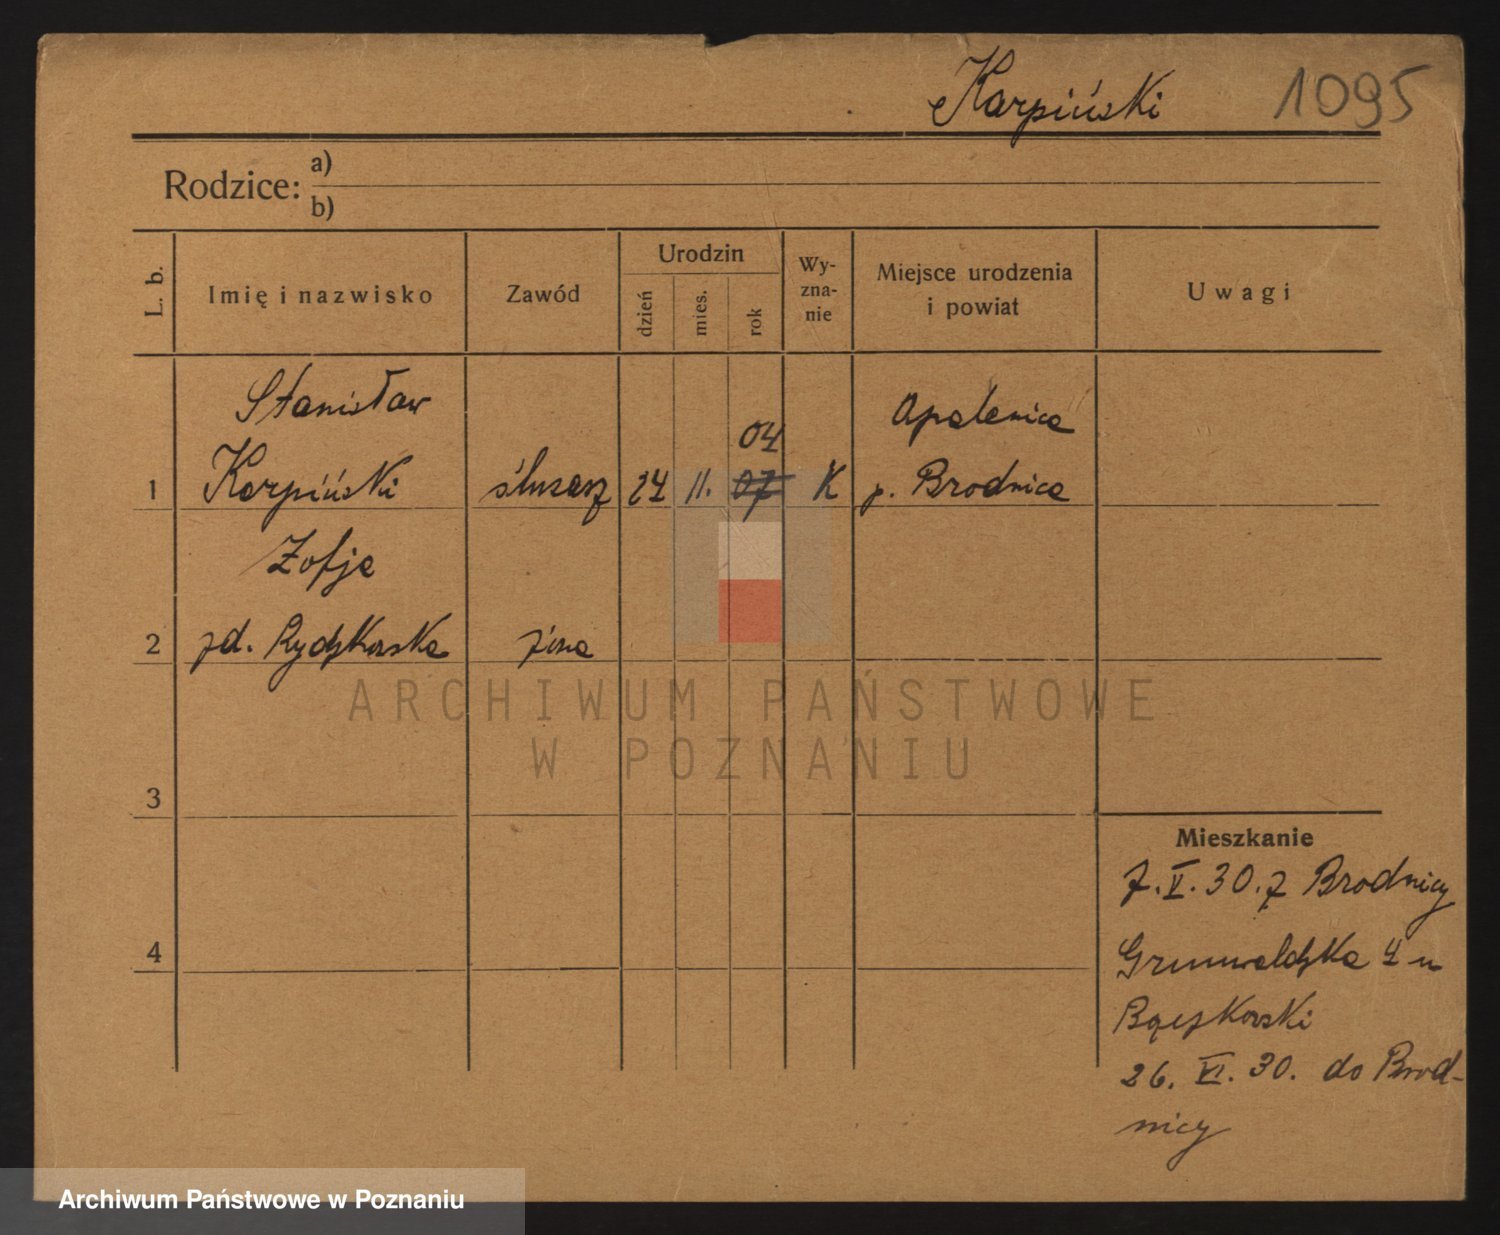 Karpiński 1095
Rodzice: a)
b)
L. b.
Imię i nazwisko
Zawód
Urodzin
dzień
mies.
rok
Wy-
zna-
nie
Miejsce urodzenia
i powiat
Uwagi
Stanisław
04
Opalenica
1 Karpiński ślusarz 24 11. 07 K p. Brodnica
Zofja
2 zd. żona
ARCHIWUM PAŃSTWOWE
W POZNANIU
3
Mieszkanie
7.V.30.z Brodnicy
4
Grunwaldzka 4 u
26. VI. 30. do Brod-
nicy
Archiwum Państwowe w Poznaniu